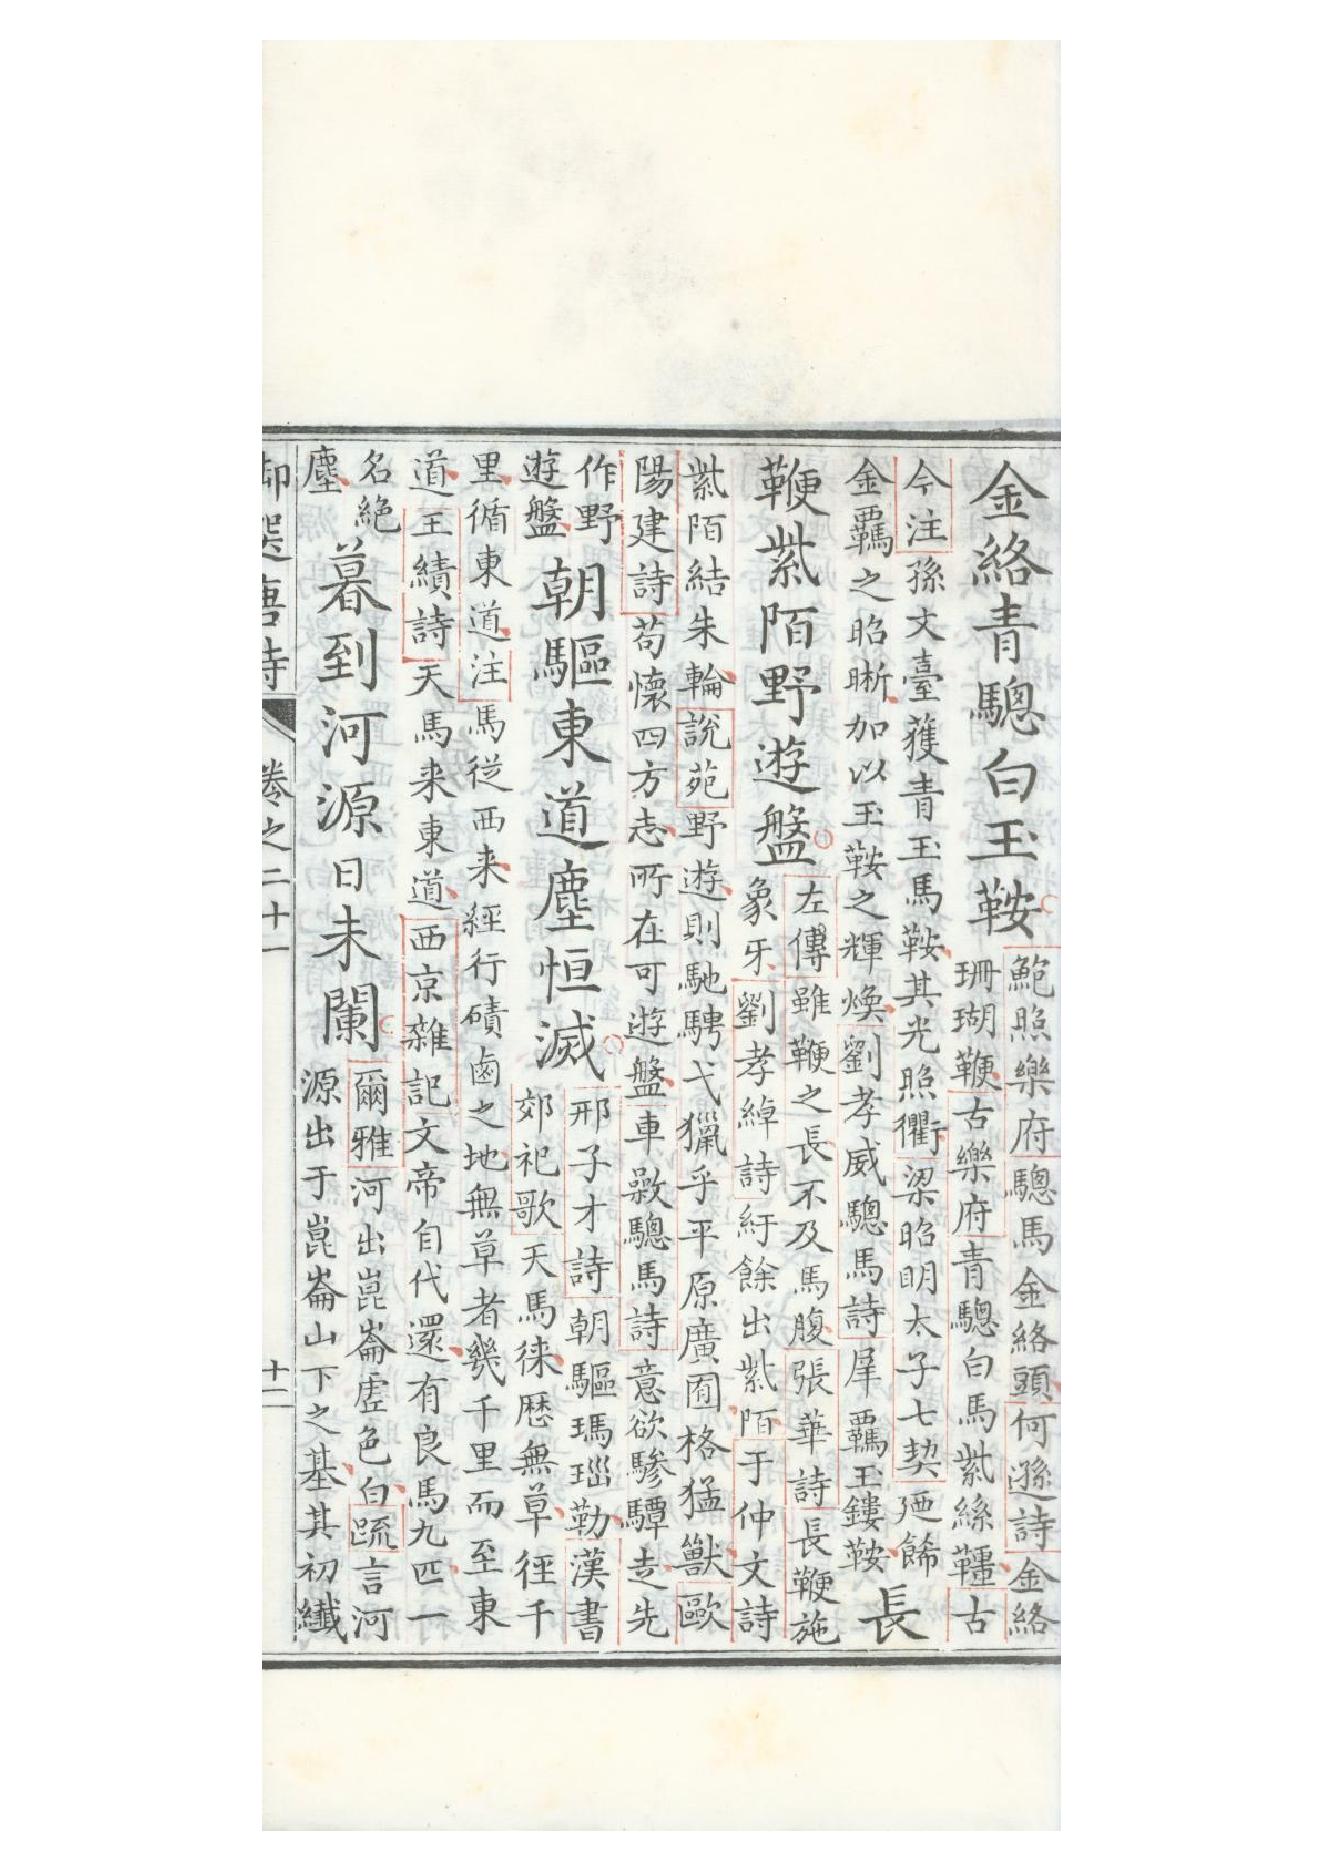 金絡青驄白玉鞍
鮑照樂府驄馬金絡頭何遜詩金絡
珊瑚鞭古樂府青驄白馬紫絲韁古
今注孫文臺獲青玉馬鞍其光照衢梁昭明太子七契廼餙
金覊之昭晰加以玉鞍之輝煥劉孝威驄馬詩犀覊玉鏤鞍
長
鞭紫陌野遊盤
左傳雖鞭之長不及馬腹張華詩長鞭施
象牙劉孝綽詩紆餘出紫陌于仲文詩
紫陌結朱輪說苑野遊則馳騁弋獵乎平原廣囿格猛獸歐
陽建詩苟懷四方志所在可遊盤車㪣驄馬詩意欲驂驔走先
作野
遊盤
朝驅東道塵恒滅
邢子才詩朝驅瑪瑙勒漢書
郊祀歌天馬徠歷無草徑千
里循東道注馬從西来經行磧鹵之地無草者幾千里而至東
道王績詩天馬来東道西京雜記文帝自代還有良馬九匹一
名絶
塵
暮到河源日未闌
爾雅河出崑崙虛色白䟽言河
源出于崑崙山下之基其初纖
御選唐詩
卷之二十一
十二